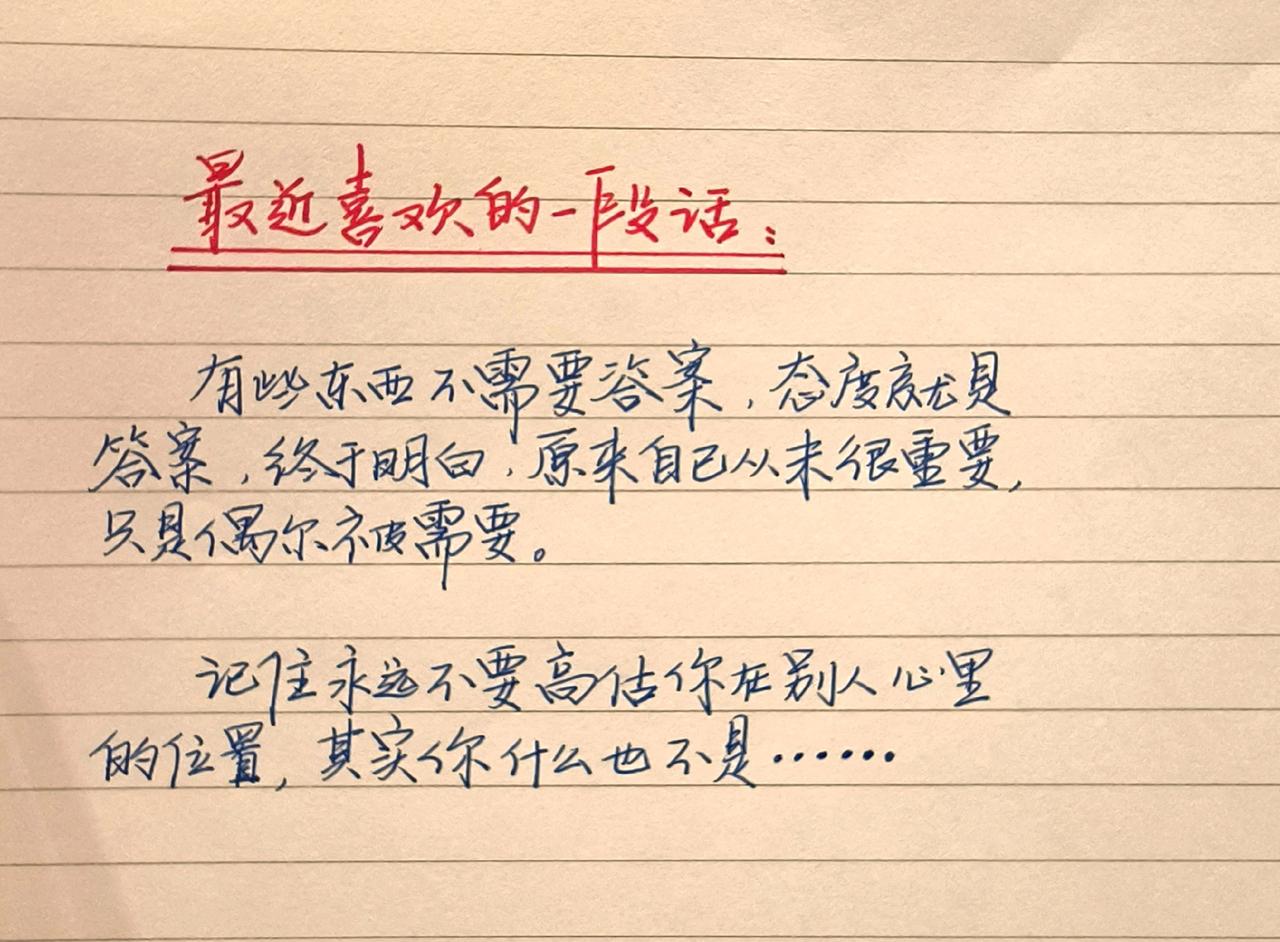 最近喜欢的一段话：
有些东西不需要答案，态度就是
答案，终于明白，原来自己从未很重要，
只是偶尔被需要。
记住永远不要高估你在别人心里
的位置，其实你什么也不是……